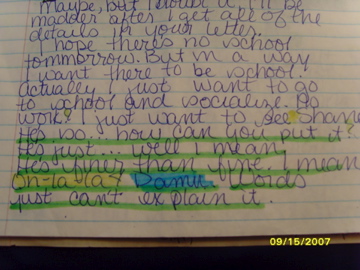 Maybe, but I doubt it I'll be
madder after I get all of the
details in your letter.
I hope there's no school
tommorrow. But in a way
I want there to be school.
actually I just want to go
to school and socialize. No
work! I just want to see Shane
He's so... how can you put it?
He's just... well I mean,
He's finer than fine. I mean
Oh-la-la? Damn. Words
just can't explain it.
09/15/2007